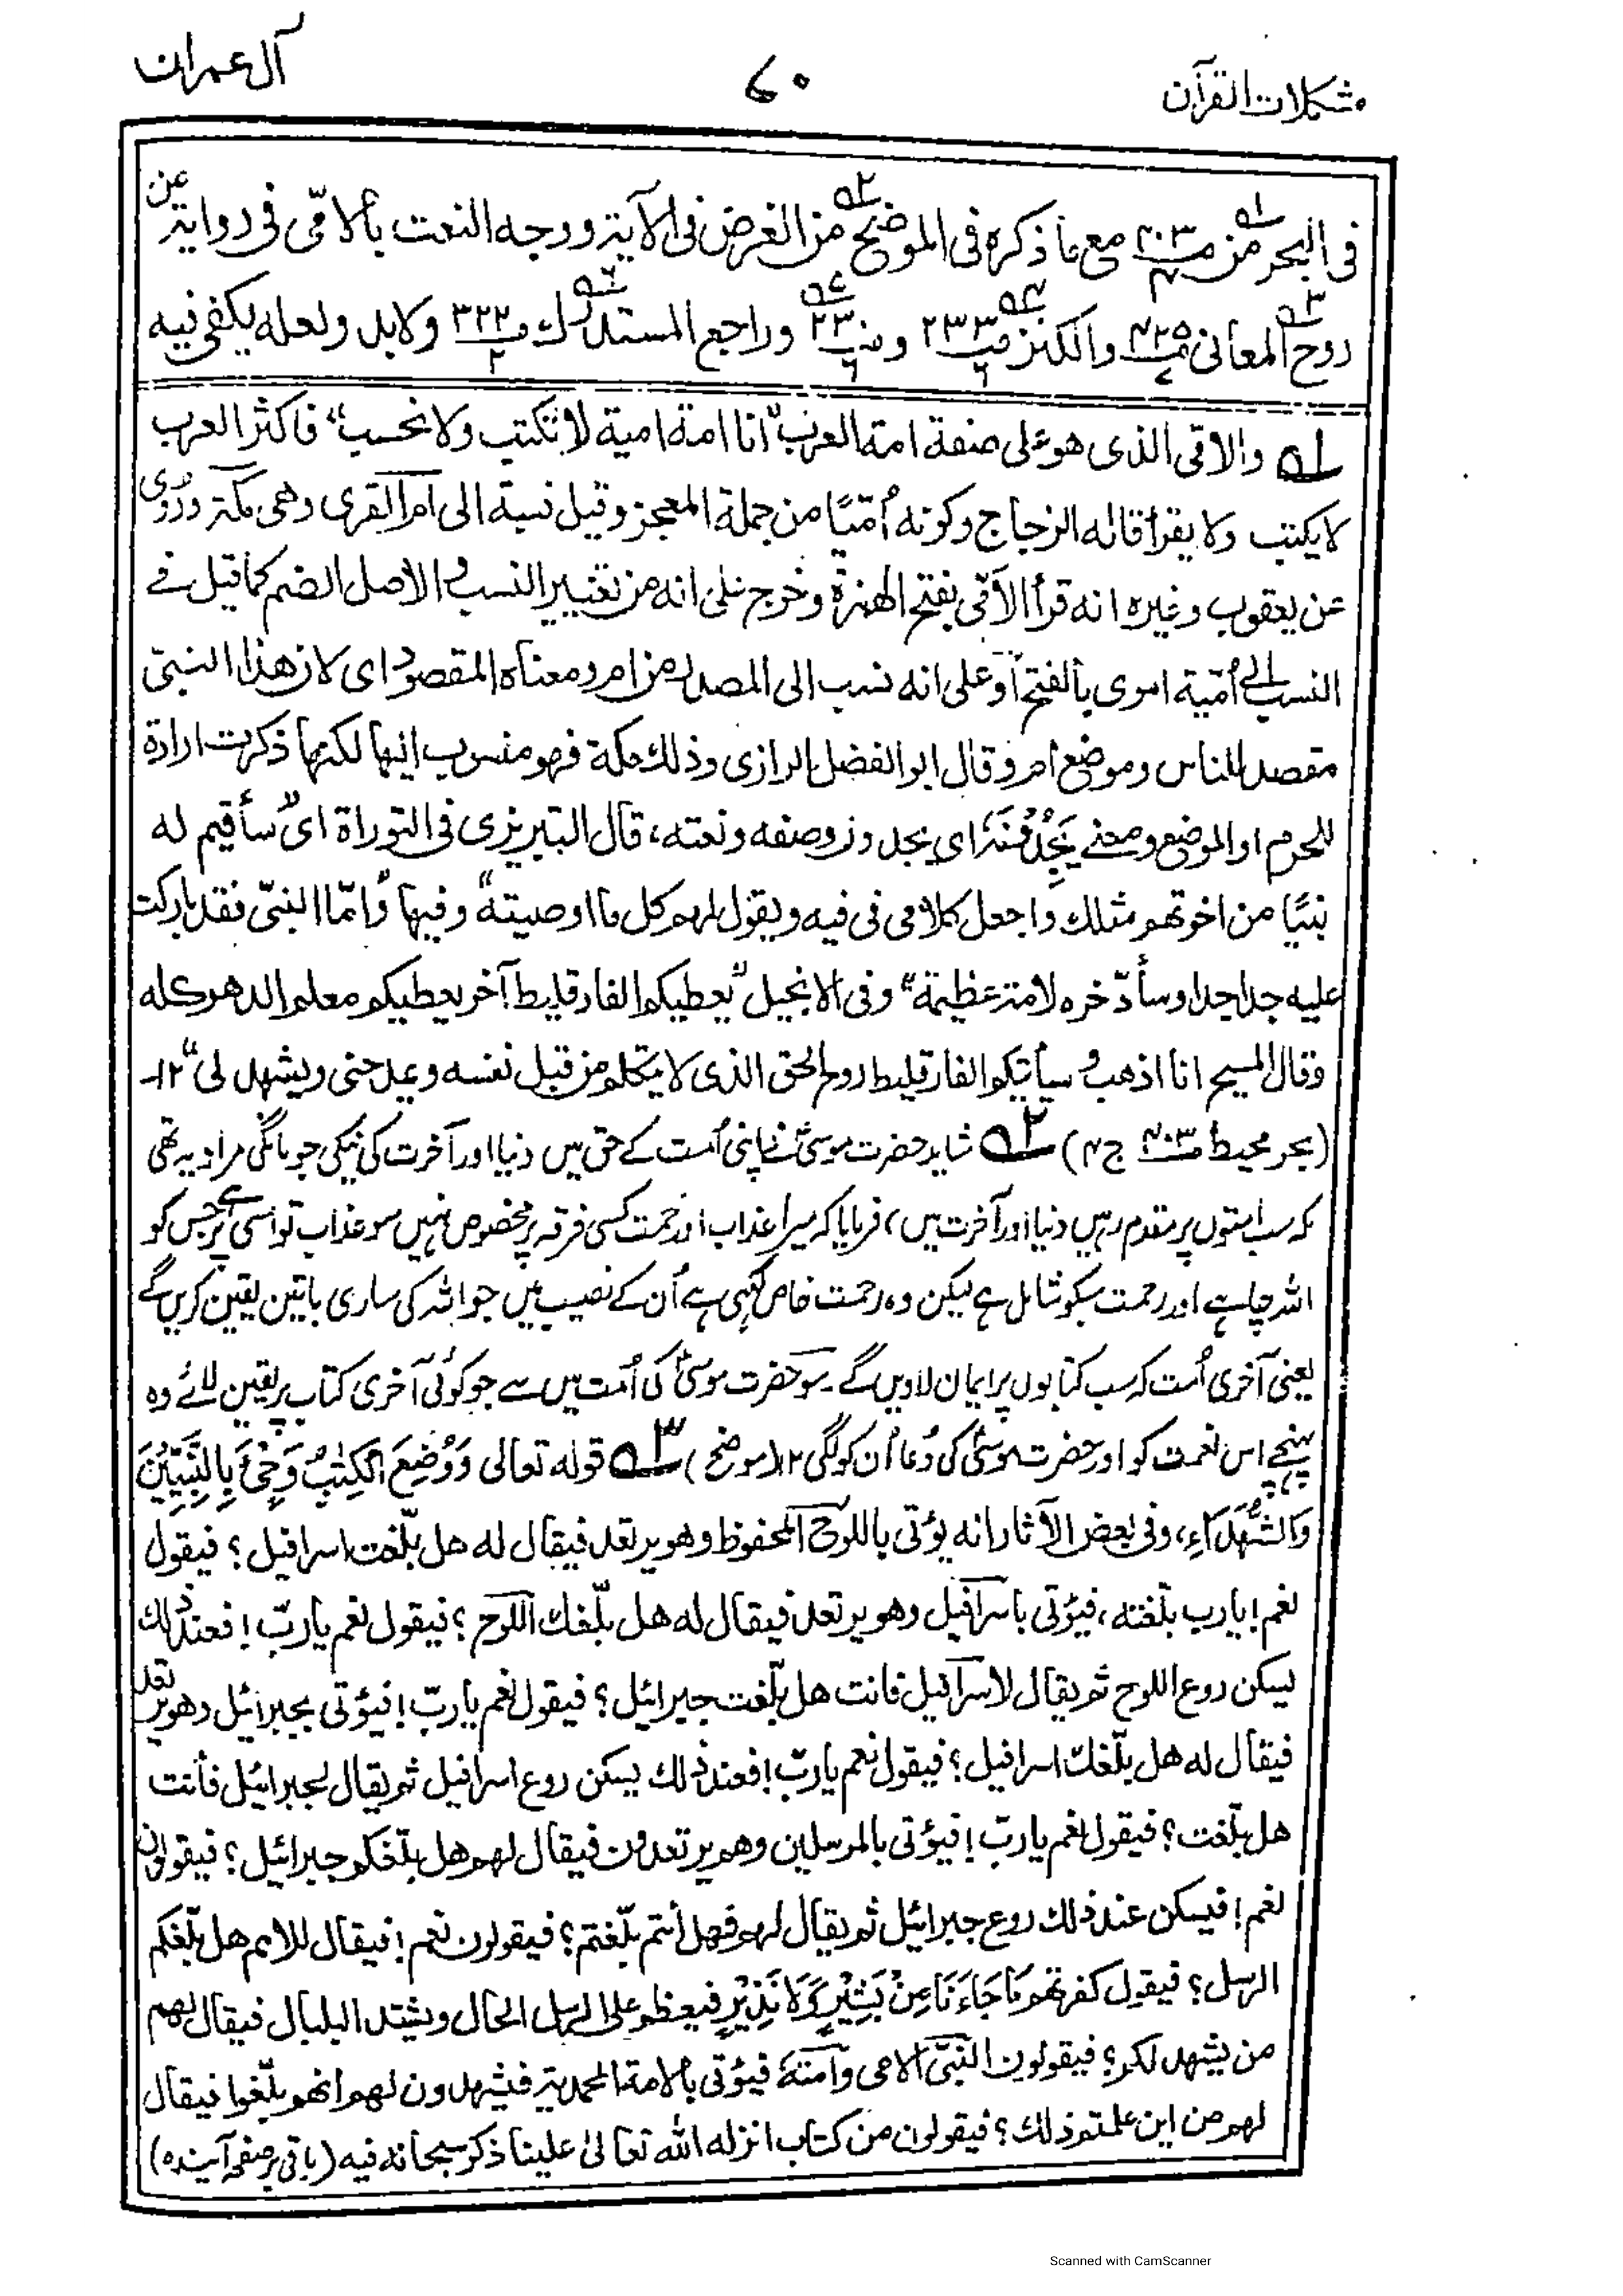 مشکلات القرآن
٧٠
آل عمران
فی البحر من ص٤٠٣/٤ مع ما ذکره فی الموضح من الغرض فی الآیة ووجه النعت بالامّی فی روایة عن
روح المعانی والکنز ص٢٣٣/٦ و ص٢٣٠/٦ وراجع المستدرك ص٣٢٢/٢ ولابد ولعله یکفی فیه
ه١ والامّی الذی هو علی صفة امة العرب "انا امة امیة لا نکتب ولا نحسب" فاکثر العرب
لا یکتب ولا یقرأ قاله الزجاج وکونه اُمّیًا من جملة المعجز وقیل نسبة الی ام القری وهی مکة وروی
عن یعقوب وغیره انه قرأ الاَمّی بفتح الهمزة وخرج علی انه من تغییر النسب والاصل الضم کما قیل فے
النسب الی اُمیّة اموی بالفتح أو علی انه نسب الی المصدر من ام ومعناه المقصود ای لان هذا النبیّ
مقصد للناس وموضع ام وقال ابو الفضل الرازی وذلك مکة فهو منسوب الیها لکنها ذکرت ارادة
للحرم او الموضع ومعنے یَجِدُوْنَهٗ ای یجدون وصفه ونعته، قال التبریزی فی التوراة ای "سأقیم له
نبیًا من اخوتهم مثلك واجعل کلامی فی فیه ویقول لهم کل ما اوصیته" وفیها "وامّا النبیّ فقد بارکت
علیه جدا جدا وسأدّخره لامة عظیمة" وفی الانجیل "یعطیکم الفارقلیط آخر یعطیکم معلم الدهر کله
وقال المسیح انا اذهب و سیأتیکم الفارقلیط روح الحق الذی لا یتکلم من قبل نفسه ویمدحنی ویشهد لی" ١٢-
(بحر محیط ص٤٠٣ ج٤) ه٢ شاید حضرت موسیٰؑ نے اپنی اُمت کے حق میں دنیا اور آخرت کی نیکی جو مانگی مراد یہ تھی
کہ سب امتوں پر مقدم رہیں دنیا اور آخرت میں، فرمایا کہ میرا عذاب اور رحمت کسی فرقہ پر مخصوص نہیں سو عذاب تو اسی پر ہے جس کو
اللہ چاہے اور رحمت سبکو شامل ہے لیکن وہ رحمت خاص لکھی ہے اُن کے نصیب میں جو اللہ کی ساری باتیں یقین کریں گے
یعنی آخری اُمت کہ سب کتابوں پر ایمان لاویں گے۔ سو حضرت موسیٰؑ کی اُمت میں سے جو کوئی آخری کتاب پر یقین لائے وہ
پہنچے اس نعمت کو اور حضرت موسیٰؑ کی دُعا اُن کو لگی ١٢ (موضح) ه٣ قوله تعالی وَوُضِعَ الْکِتٰبُ وَجِیْٓءَ بِالنَّبِیّٖنَ
وَالشُّهَدَآءِ، وفی بعض الآثار انه یؤتی باللوح المحفوظ وهو یرتعد فیقال له هل بلّغت اسرافیل؟ فیقول
نعم! یارب بلّغته، فیؤتی باسرافیل وهو یرتعد فیقال له هل بلّغك اللوح؟ فیقول نعم یاربّ! فعند ذلك
یسکن روع اللوح ثم یقال لاسرافیل فانت هل بلّغت جبرائیل؟ فیقول نعم یاربّ! فیؤتی بجبرائیل وهو یرتعد
فیقال له هل بلّغك اسرافیل؟ فیقول نعم یاربّ! فعند ذلك یسکن روع اسرافیل ثم یقال لجبرائیل فأنت
هل بلّغت؟ فیقول نعم یاربّ! فیؤتی بالمرسلین وهم یرتعدون فیقال لهم هل بلّغکم جبرائیل؟ فیقولون
نعم! فیسکن عند ذلك روع جبرائیل ثم یقال لهم فهل أنتم بلّغتم؟ فیقولون نعم! فیقال للامم هل بلّغکم
الرسل؟ فیقول کفرتهم مَا جَآءَنَا مِنْ بَشِیْرٍ وَّلَا نَذِیْرٍ فیعظم علی الرسل الحال ویشتد البلبال فیقال لهم
من یشهد لکم؟ فیقولون النبیّ الامی وأمته فیؤتی بالامة المحمدیة فیشهدون لهم انهم بلّغوا فیقال
لهم من این علمتم ذلك؟ فیقولون من کتاب انزله الله تعالیٰ علینا ذکر سبحانه فیه (باقی بر صفحہ آیندہ)
Scanned with CamScanner